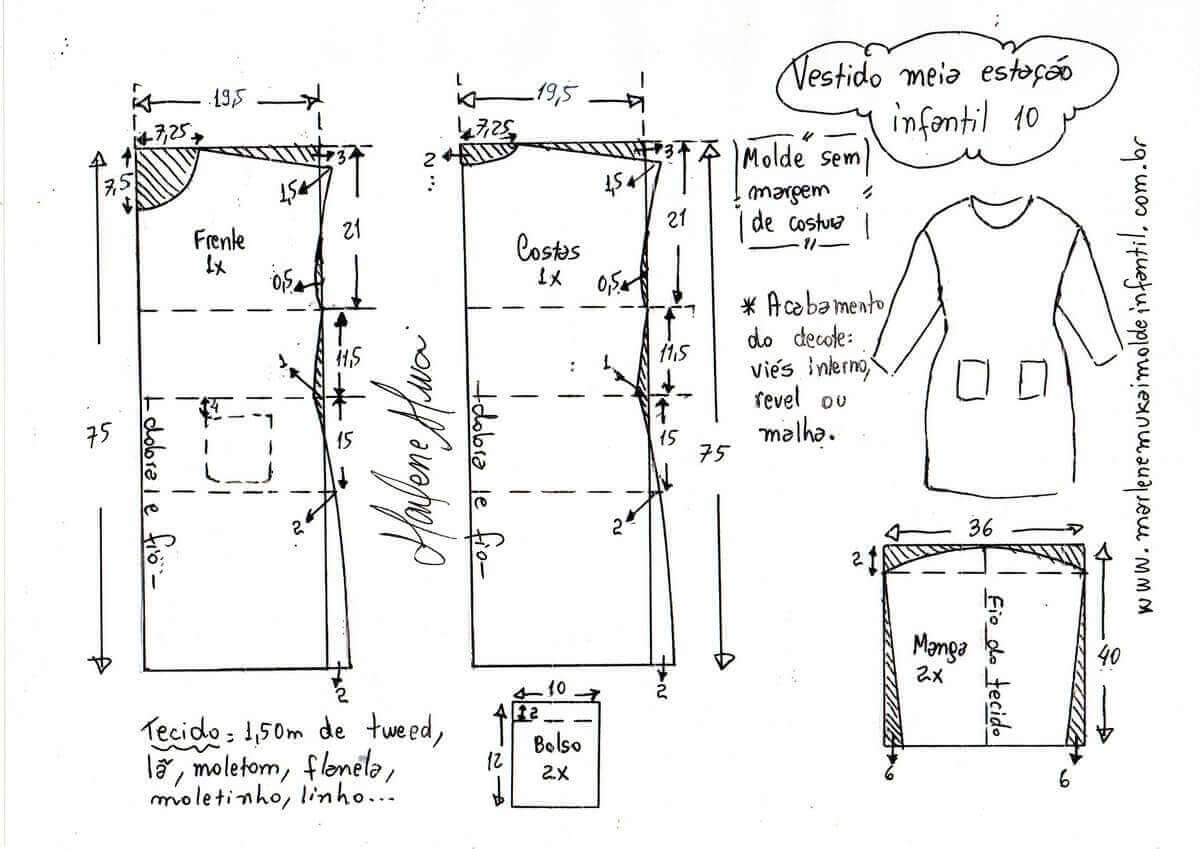 Vestido meia estação
infantil 10
Molde sem
margem
de costura
* Acabamento
do decote:
viés interno,
revel ou
malha.
www.marlenemukaimoldeinfantil.com.br
19,5
7,25
7,5
3
1,5
21
Frente
1x
0,5
1
11,5
4
15
75
2
2
dobra e fio
19,5
7,25
2
3
1,5
21
Costas
1x
0,5
1
11,5
15
75
2
2
dobra e fio
36
2
Manga
2x
Fio do tecido
40
6
6
10
2
12
Bolso
2x
Tecido = 1,50m de tweed,
lã, moletom, flanela,
moletinho, linho...